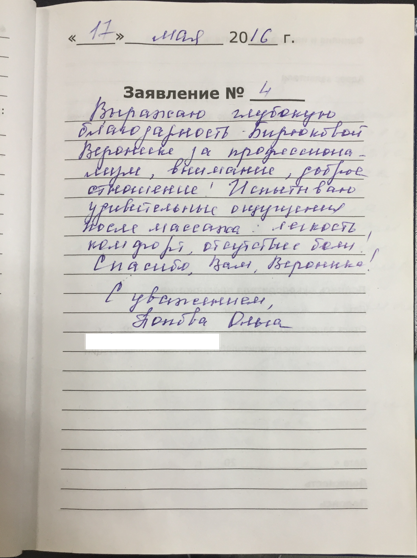 « 17 » мая 2016 г.
Заявление № 4
Выражаю глубокую
благодарность Бирюковой
Веронике за профессиона-
лизм, внимание, доброе
отношение! Испытываю
удивительные ощущения
после массажа: легкость,
комфорт, отсутствие боли.
Спасибо, Вам, Вероника!
С уважением,
Попова Ольга